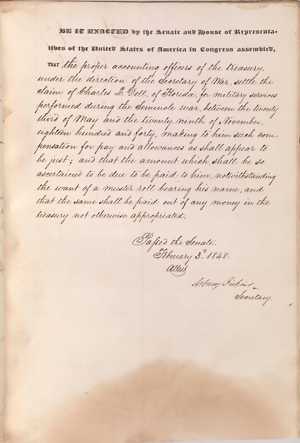 BE IT ENACTED by the Senate and House of Representa-
tives of the United States of America in Congress assembled,
THAT the proper accounting officers of the treasury,
under the direction of the Secretary of War settle the
claim of Charles L. Dell, of Florida, for military services
performed during the Seminole war, between the twenty
third of May and the twenty ninth of November,
eighteen hundred and forty, making to him such com-
pensation for pay and allowances as shall appear to
be just; and that the amount which shall be so
ascertained to be due to be paid to him, notwithstanding
the want of a muster roll bearing his name, and
that the same shall be paid out of any money in the
treasury not otherwise appropriated.
Passed the Senate.
February 3d 1848.
Attest
Asbury Dickins
Secretary.